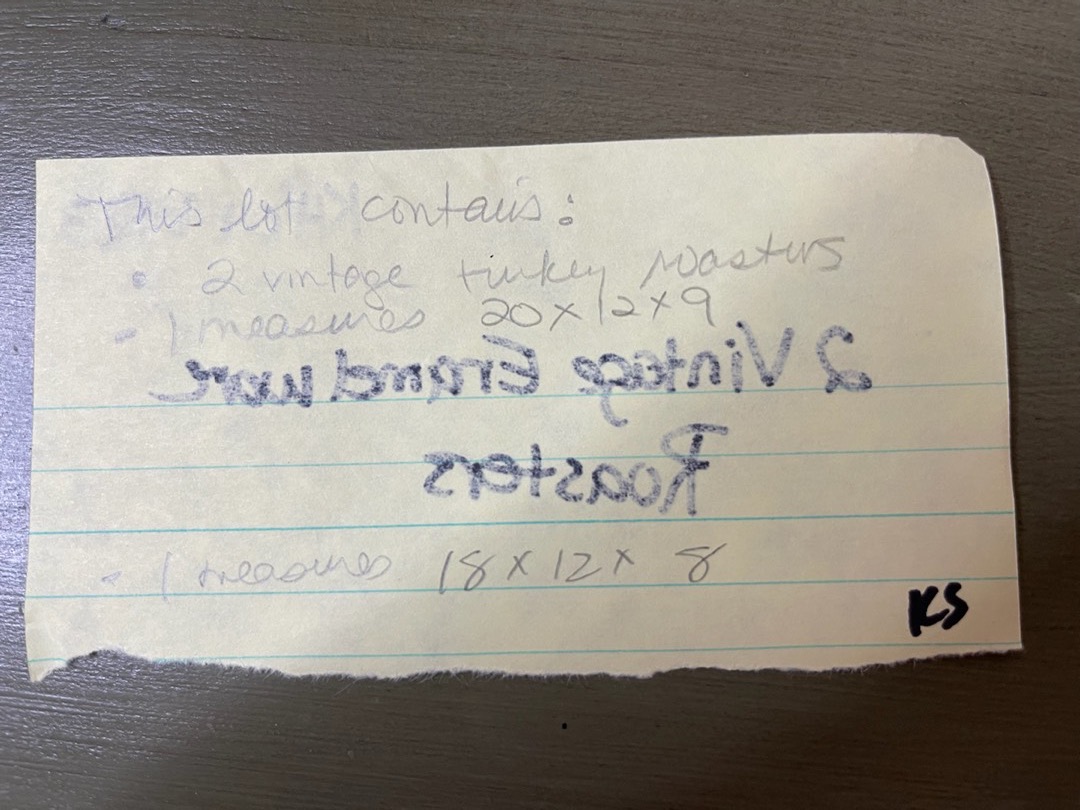 This lot contains:
• 2 vintage turkey roasters
- 1 measures 20x12x9
2 Vintage Enamelware
Roasters
- 1 measures 18x12x 8
KS